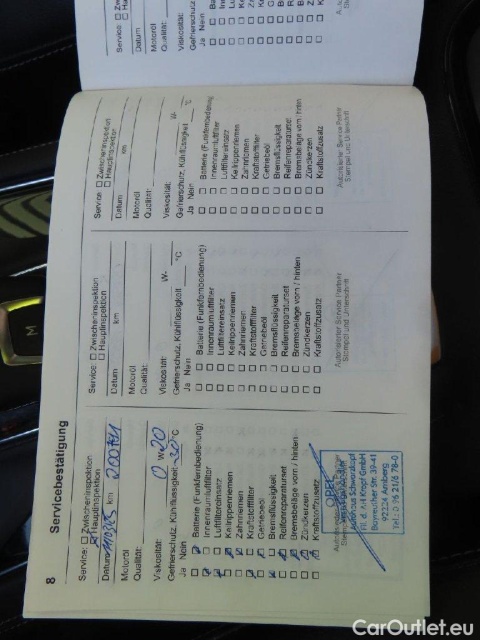 8
Servicebestätigung
Service: Zwischeninspektion
Hauptinspektion
Datum km
Motoröl
Qualität:
Viskosität: 0 W- 20
Gefrierschutz, Kühlflüssigkeit -30 °C
Ja Nein
Batterie (Funkfernbedienung)
Innenraumluftfilter
Luftfiltereinsatz
Keilrippenriemen
Zahnriemen
Kraftstofffilter
Getriebeöl
Bremsflüssigkeit
Reifenreparaturset
Bremsbeläge vorn / hinten
Zündkerzen
Kraftstoffzusatz
OPEL
Autohaus Schwarzkopf
92224 Amberg
Service: Zwischeninspektion
Hauptinspektion
Datum km
Motoröl
Qualität:
Viskosität: W-
Gefrierschutz, Kühlflüssigkeit °C
Ja Nein
Batterie (Funkfernbedienung)
Innenraumluftfilter
Luftfiltereinsatz
Keilrippenriemen
Zahnriemen
Kraftstofffilter
Getriebeöl
Bremsflüssigkeit
Reifenreparaturset
Bremsbeläge vorn / hinten
Zündkerzen
Kraftstoffzusatz
Autorisierter Service Partner
Stempel und Unterschrift
Service: Zwischeninspektion
Hauptinspektion
Datum km
Motoröl
Qualität:
Viskosität: W-
Gefrierschutz, Kühlflüssigkeit °C
Ja Nein
Batterie (Funkfernbedienung)
Innenraumluftfilter
Luftfiltereinsatz
Keilrippenriemen
Zahnriemen
Kraftstofffilter
Getriebeöl
Bremsflüssigkeit
Reifenreparaturset
Bremsbeläge vorn / hinten
Zündkerzen
Kraftstoffzusatz
Autorisierter Service Partner
Stempel und Unterschrift
Service:
Datum
Motoröl
Qualität:
Viskosität:
Gefrierschutz
Ja Nein
M
CarOutlet.eu